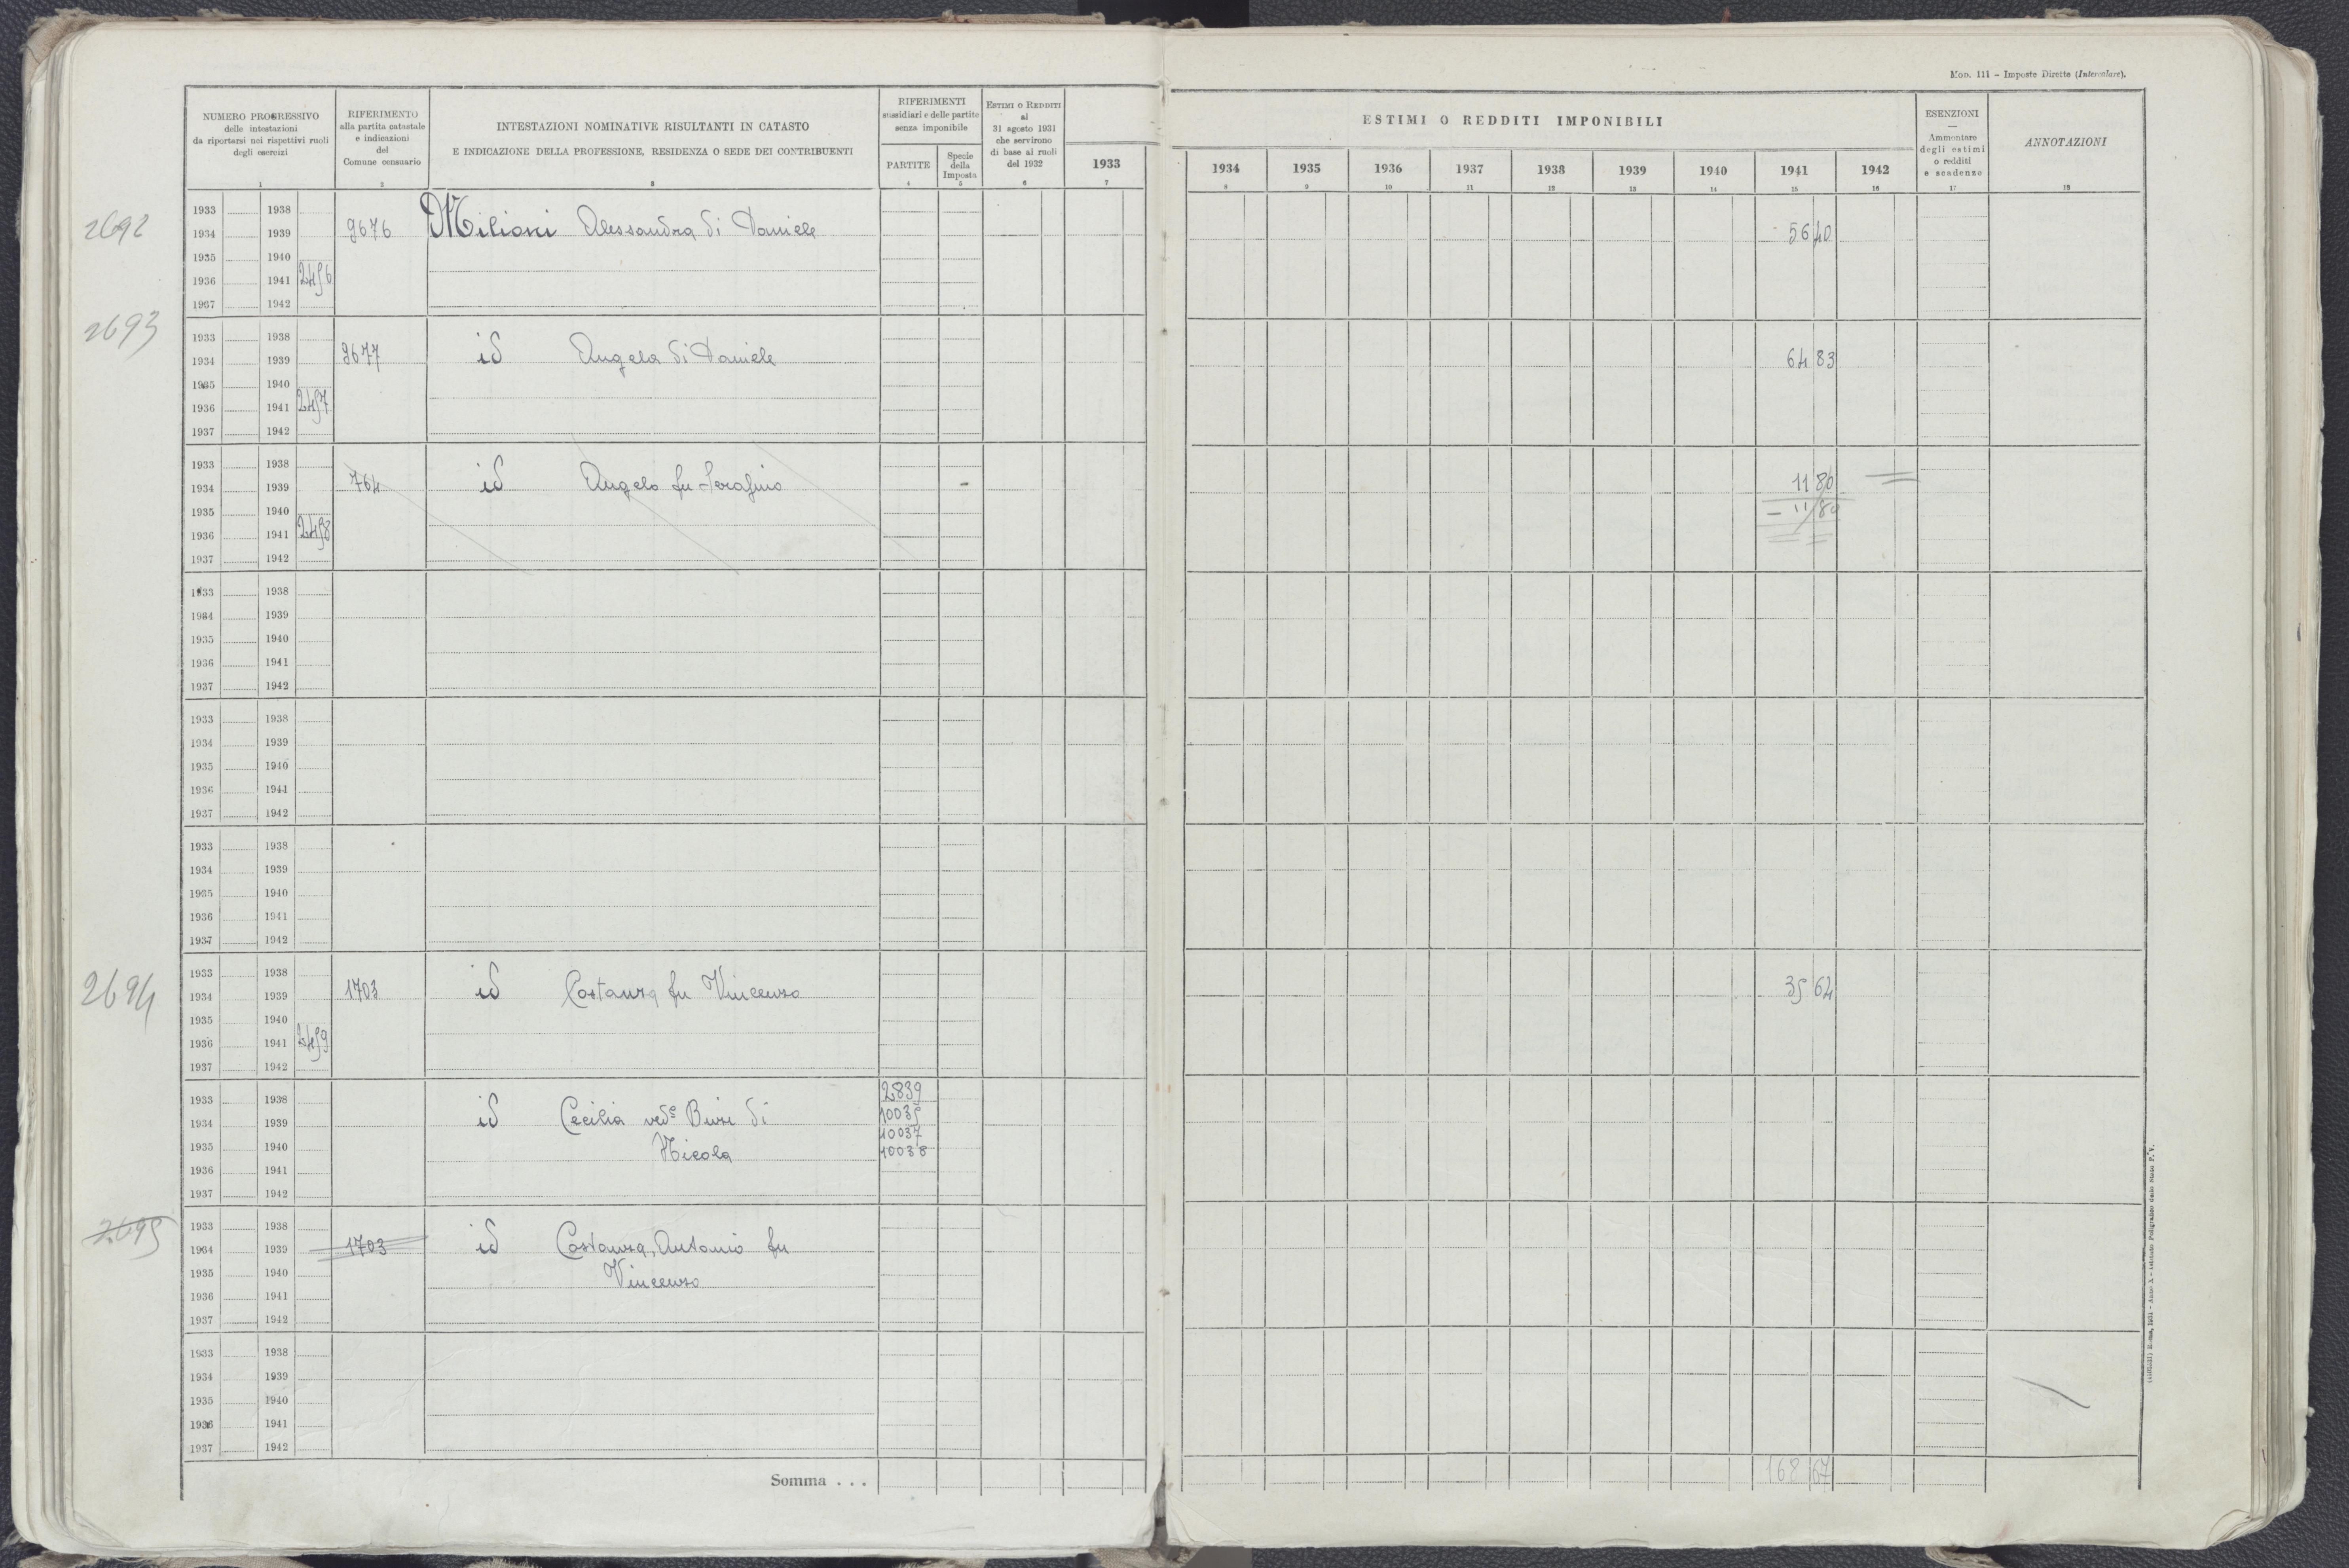 Mod. 111 – Imposte Dirette (Intercalare).
NUMERO PROGRESSIVO
delle intestazioni
da riportarsi nei rispettivi ruoli
degli esercizi
1
RIFERIMENTO
alla partita catastale
e indicazioni
del
Comune censuario
2
INTESTAZIONI NOMINATIVE RISULTANTI IN CATASTO
E INDICAZIONE DELLA PROFESSIONE, RESIDENZA O SEDE DEI CONTRIBUENTI
3
RIFERIMENTI
sussidiari e delle partite
senza imponibile
PARTITE
4
Specie
della
Imposta
5
ESTIMI O REDDITI
al
31 agosto 1931
che servirono
di base ai ruoli
del 1932
6
1933
7
ESTIMI O REDDITI IMPONIBILI
1934 1935 1936 1937 1938 1939 1940 1941 1942
8 9 10 11 12 13 14 15 16
ESENZIONI
—
Ammontare
degli estimi
o redditi
e scadenze
17
ANNOTAZIONI
18
2692
1933 1938
1934 1939 9676 Milioni Alessandra di Daniele 56 40
1935 1940
1936 1941 2456
1967 1942
2693
1933 1938
1934 1939 9677 id Angela di Daniele 64 83
1935 1940
1936 1941 2457
1937 1942
1933 1938
1934 1939 764 id Angelo fu Serafino 11 80
1935 1940 – 11 80
1936 1941 2458
1937 1942
1933 1938
1934 1939
1935 1940
1936 1941
1937 1942
1933 1938
1934 1939
1935 1940
1936 1941
1937 1942
1933 1938
1934 1939
1935 1940
1936 1941
1937 1942
2694
1933 1938
1934 1939 1703 id Costanza fu Vincenzo 35 64
1935 1940
1936 1941 2459
1937 1942
1933 1938 2839
1934 1939 id Cecilia ved. di 10035
10037
1935 1940 Nicola 10038
1936 1941
1937 1942
2695
1933 1938
1934 1939 1703 id Costanza, Antonio fu
1935 1940 Vincenzo
1936 1941
1937 1942
1933 1938
1934 1939
1935 1940
1936 1941
1937 1942
Somma . . . 168 67